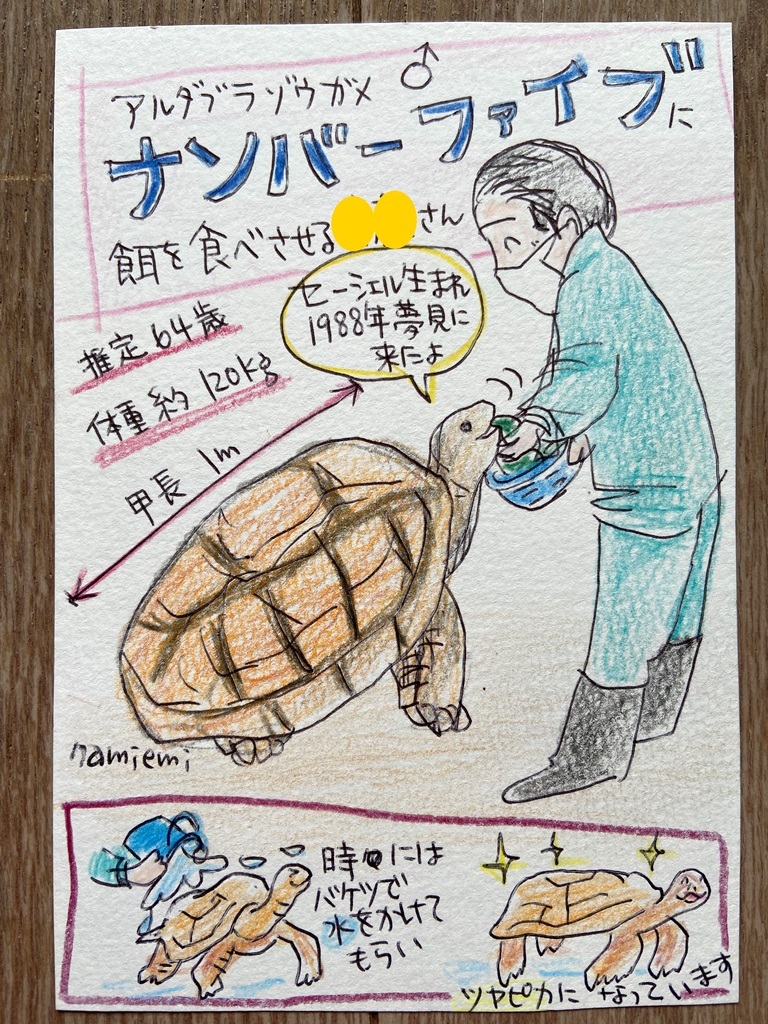 アルダブラゾウガメ♂
ナンバーファイブに
餌を食べさせる さん
セーシェル生まれ
1988年夢見に
来たよ
推定64歳
体重約120kg
甲長 1m
namiemi
時々には
バケツで
水をかけて
もらい
ツヤピカになっています